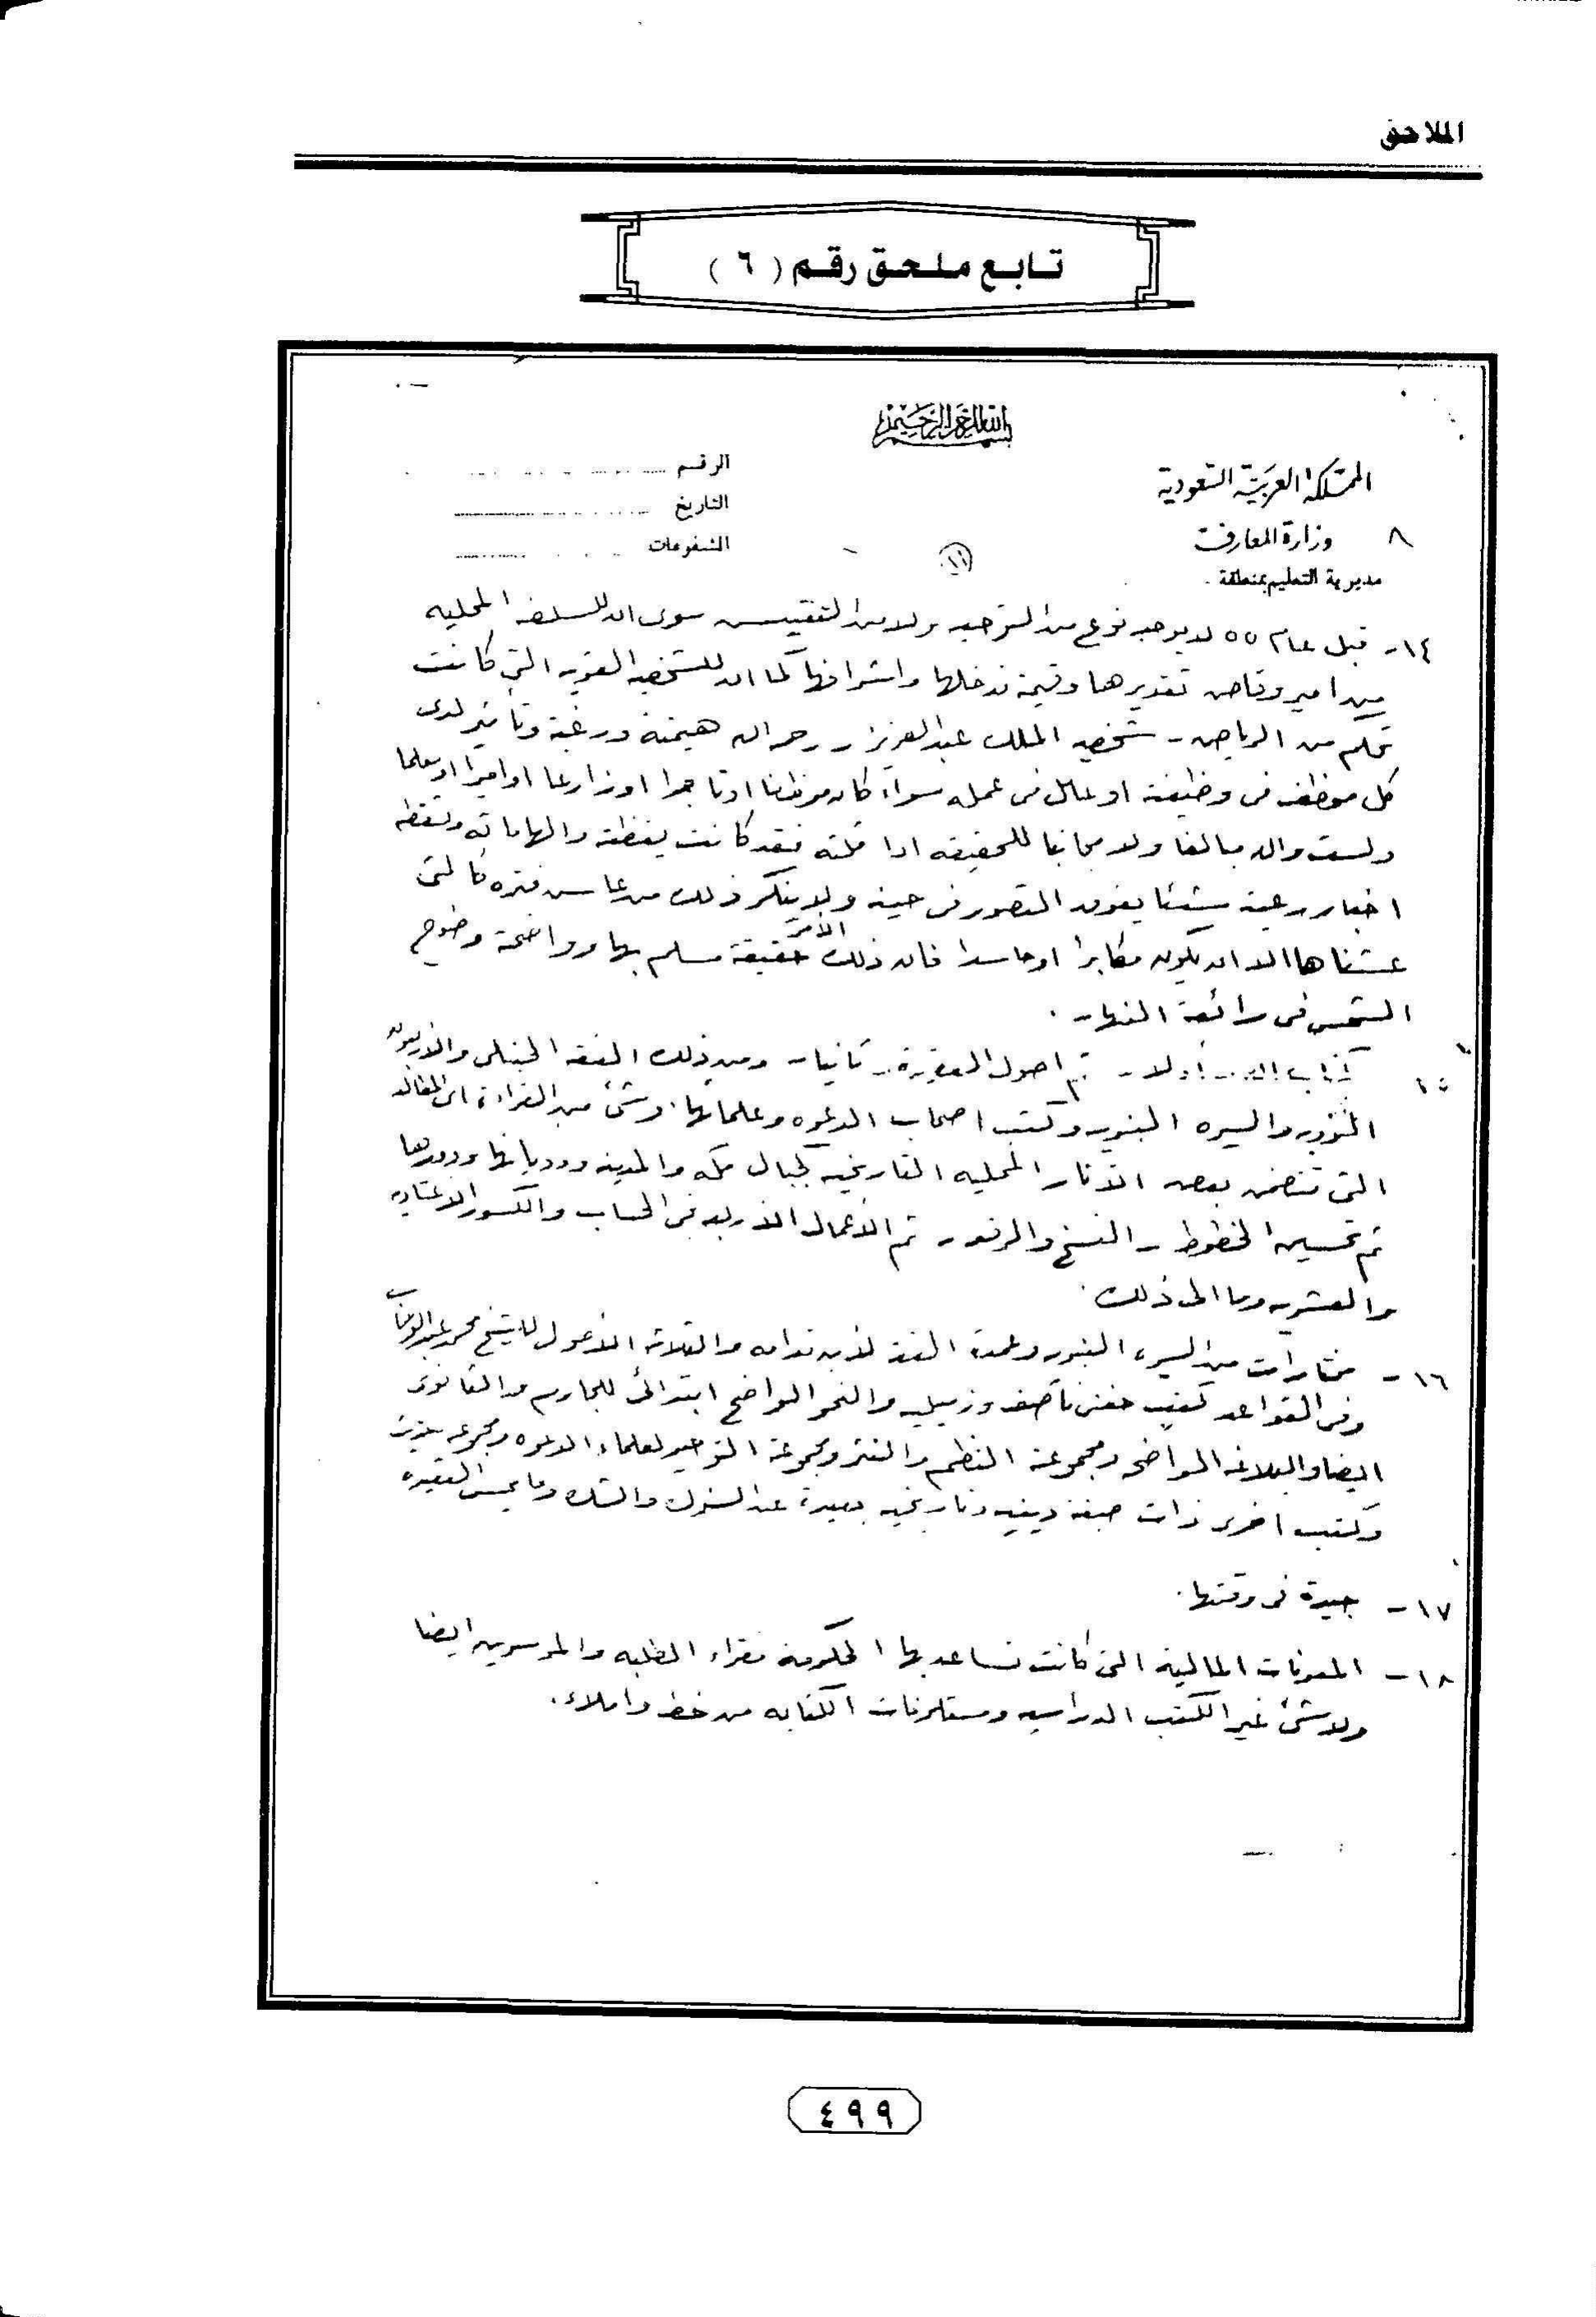 الملاحق
تابع ملحق رقم ( ٦ )
بسم الله الرحمن الرحيم
المملكة العربية السعودية
الرقم
وزارة المعارف
التاريخ
٨
المشفوعات
مديرية التعليم بمنطقة
١٤- قبل عام ٥٥ لا يوجد نوع من التوجيه ولا من التفتيش سوى ان للسلطه المحليه
من امير وقاض تقديرها وقيمة تدخلها واشرافها كما ان للشخصيه القويه التي كانت
تحكم من الرياض - شخصيه الملك عبدالعزيز - رحمه الله هيمنة ورغبة وتاثير لدى
كل موظف في وظيفته او عامل في عمله سواء كان موظفا او تاجرا او زارعا او اميرا او معلما
ولست والله مبالغا ولا مجانبا للحقيقه اذا قلته فقد كانت يقظته والهاماته
اخبار رعيته شيئا يفوق التصور في حينه ولا ينكر ذلك من عاش فتره كالتي
عشناها الا ان يكون مكابرا او حاسدا فان ذلك الأمر حقيقة مسلم بها وواضحة وضوح
الشمس في رائعة النهار .
١٥ كتاب الله أولا - ثم اصول العقيدة - ثانيا - ومن ذلك الفقه الحنبلي والاربعون
النوويه والسيره النبويه وكتب اصحاب الدعوه وعلمائها، وشئ من القراءة
التي تتضمن بعض الآثار المحليه التاريخيه كجبال مكه والمدينه ووديانها ودورها
ثم تحسين الخطوط - النسخ والرقعه - ثم الأعمال الاربعه في الحساب والكسور الاعتياديه
والعشريه وما الى ذلك .
١٦- مختارات من السيره النبويه وعمدة الفقه لابن قدامه والثلاثة الاصول للشيخ محمد عبدالوهاب
وفي القواعد كتب حفني ناصف وزميليه والنحو الواضح ابتدائي للجارم والثانوي
ايضا والبلاغه الواضحه ومجموعة النظم والنثر ومجموعة التوحيد لعلماء الدعوه ومجموعه
وكتب اخرى ذات صبغة دينيه وتاريخيه بعيدة عن الشرك والشك وما يمس العقيده
١٧- جيدة في وقتها .
١٨- المعونات المالية التي كانت تساعد بها الحكومة فقراء الطلبه والموسرين ايضا
ولا شئ غير الكتب الدراسيه ومستلزمات الكتابه من خط واملاء .
٤٩٩